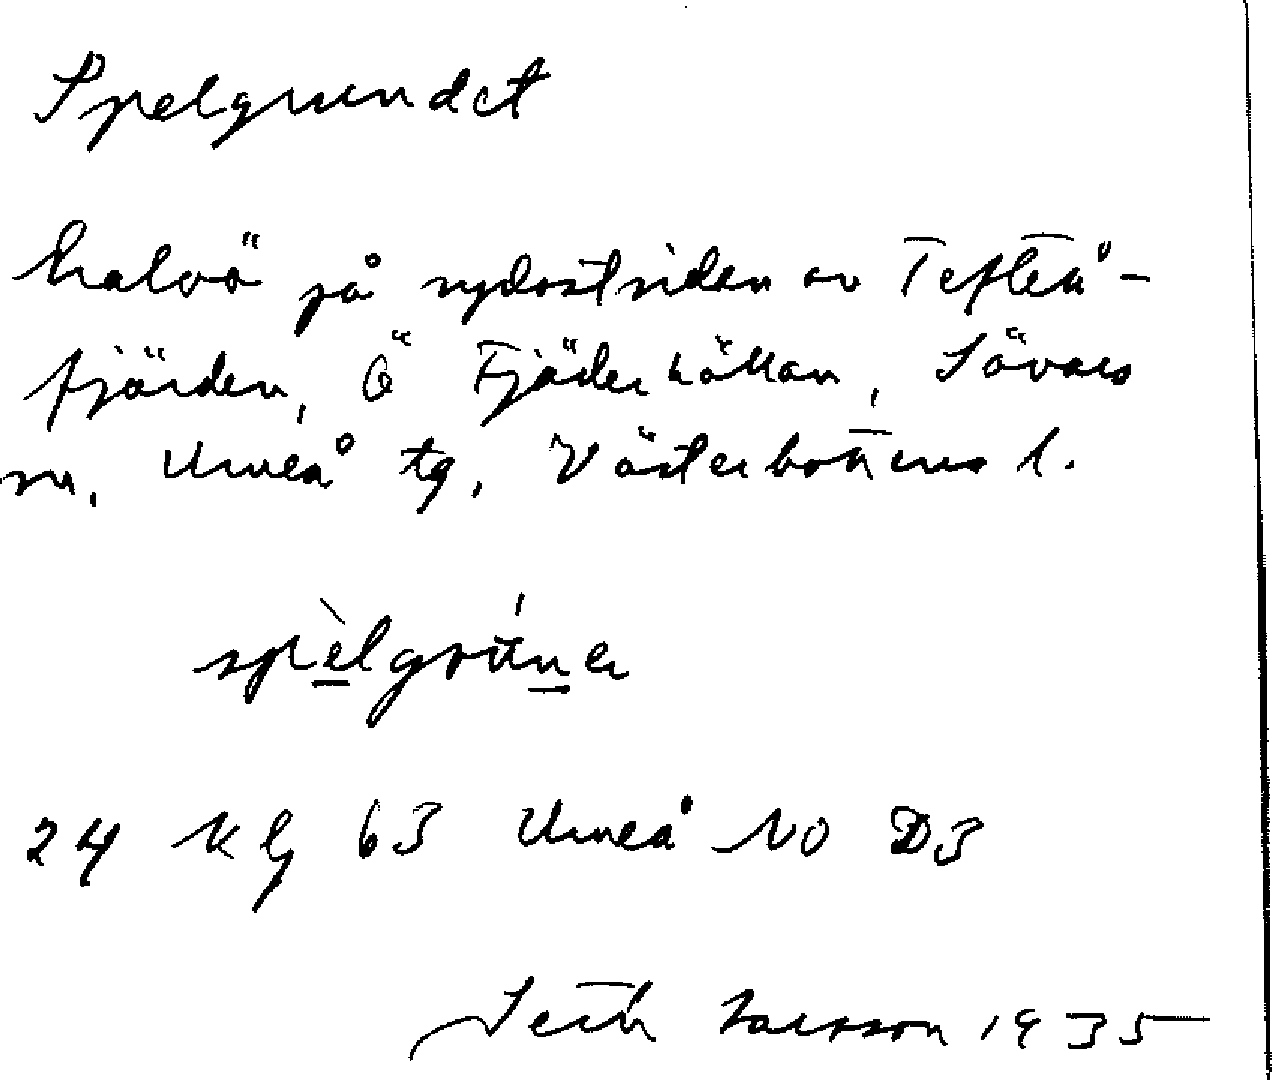 Spelgrundet
halvö på sydostsidan av Tefteå-
fjärden, Ö Fjäderhällan, Sävars
sn, Umeå tg, Västerbottens l.
24 Kg 63 Umeå NO D3
Seth Larsson 1935